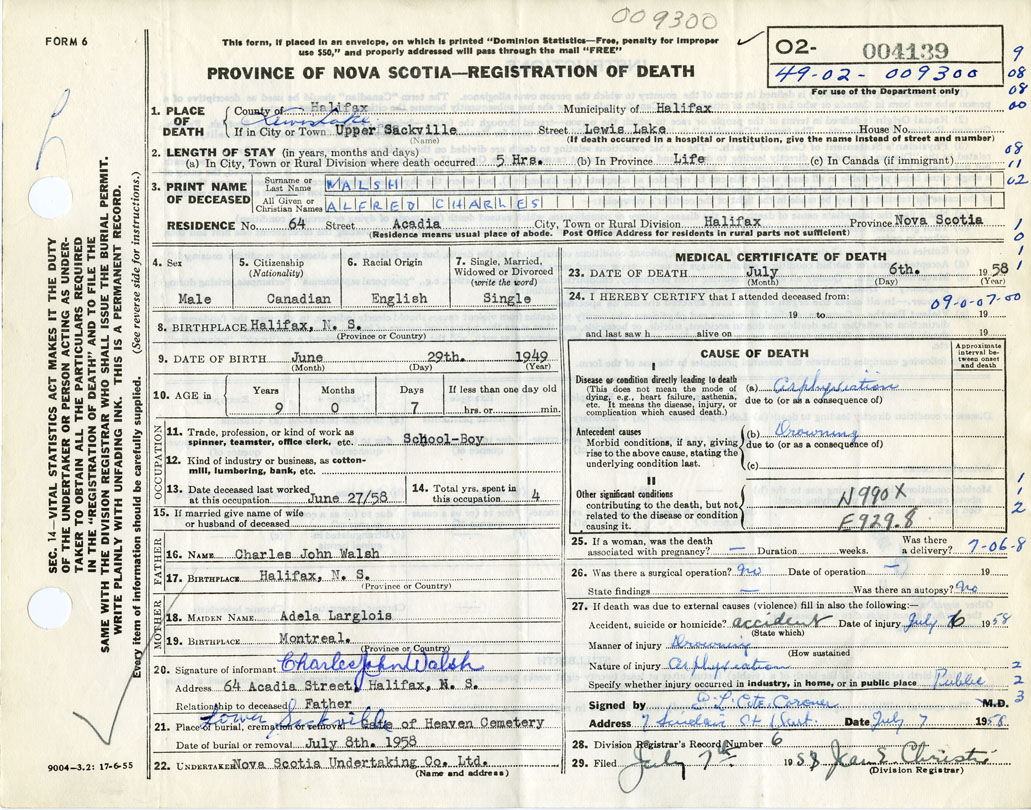 009300
FORM 6
This form, if placed in an envelope, on which is printed "Dominion Statistics—Free, penalty for improper
use $50," and properly addressed will pass through the mail "FREE"
PROVINCE OF NOVA SCOTIA—REGISTRATION OF DEATH
02- 004139
49-02-009300
For use of the Department only
9
08
08
00
08
11
02
1
0
1
1. PLACE OF DEATH
County of Halifax Municipality of Halifax
Lewis Lake
If in City or Town Upper Sackville Street Lewis Lake House No.
(Name) (If death occurred in a hospital or institution, give the name instead of street and number)
2. LENGTH OF STAY (in years, months and days)
(a) In City, Town or Rural Division where death occurred 5 Hrs. (b) In Province Life (c) In Canada (if immigrant)
3. PRINT NAME OF DECEASED
Surname or Last Name WALSH
All Given or Christian Names ALFRED CHARLES
RESIDENCE No. 64 Street Acadia City, Town or Rural Division Halifax Province Nova Scotia
(Residence means usual place of abode. Post Office Address for residents in rural parts not sufficient)
4. Sex
Male
5. Citizenship
(Nationality)
Canadian
6. Racial Origin
English
7. Single, Married,
Widowed or Divorced
(write the word)
Single
8. BIRTHPLACE Halifax, N. S.
(Province or Country)
9. DATE OF BIRTH June 29th. 1949
(Month) (Day) (Year)
10. AGE in
Years Months Days If less than one day old
9 0 7 hrs. or min.
OCCUPATION
11. Trade, profession, or kind of work as
spinner, teamster, office clerk, etc. School-Boy
12. Kind of industry or business, as cotton-
mill, lumbering, bank, etc.
13. Date deceased last worked
at this occupation June 27/58
14. Total yrs. spent in
this occupation 4
15. If married give name of wife
or husband of deceased
FATHER
16. NAME Charles John Walsh
17. BIRTHPLACE Halifax, N. S.
(Province or Country)
MOTHER
18. MAIDEN NAME Adela Larglois
19. BIRTHPLACE Montreal.
(Province or Country)
20. Signature of informant Charles John Walsh
Address 64 Acadia Street, Halifax, N. S.
Relationship to deceased Father
Lower Sackville
21. Place of burial, cremation or removal Gate of Heaven Cemetery
Date of burial or removal July 8th. 1958
22. UNDERTAKER Nova Scotia Undertaking Co. Ltd.
(Name and address)
MEDICAL CERTIFICATE OF DEATH
23. DATE OF DEATH July 6th. 1958
(Month) (Day) (Year)
24. I HEREBY CERTIFY that I attended deceased from:
09-0-07-00
19 to 19
and last saw h alive on 19
CAUSE OF DEATH
Approximate
interval be-
tween onset
and death
I
Disease or condition directly leading to death
(This does not mean the mode of
dying, e.g., heart failure, asthenia,
etc. It means the disease, injury, or
complication which caused death.)
(a) Asphyxiation
due to (or as a consequence of)
Antecedent causes
Morbid conditions, if any, giving
rise to the above cause, stating the
underlying condition last.
(b) Drowning
due to (or as a consequence of)
(c)
II
Other significant conditions
contributing to the death, but not
related to the disease or condition
causing it.
N990X
E929.8
1
1
2
25. If a woman, was the death
associated with pregnancy? — Duration weeks. Was there
a delivery? 7-06-8
26. Was there a surgical operation? No Date of operation — 19
State findings — Was there an autopsy? No
27. If death was due to external causes (violence) fill in also the following:—
Accident, suicide or homicide? accident Date of injury July 6 1958
(State which)
Manner of injury Drowning
(How sustained
Nature of injury Asphyxiation
Specify whether injury occurred in industry, in home, or in public place Public
2
2
3
Signed by Coroner M.D.
Address 7 Sinclair St Dart. Date July 7 1958
28. Division Registrar's Record Number 6
29. Filed July 7th 1958 Jean E. Christie
(Division Registrar)
SEC. 14—VITAL STATISTICS ACT MAKES IT THE DUTY
OF THE UNDERTAKER OR PERSON ACTING AS UNDER-
TAKER TO OBTAIN ALL THE PARTICULARS REQUIRED
IN THE "REGISTRATION OF DEATH" AND TO FILE THE
SAME WITH THE DIVISION REGISTRAR WHO SHALL ISSUE THE BURIAL PERMIT.
WRITE PLAINLY WITH UNFADING INK. THIS IS A PERMANENT RECORD.
Every item of information should be carefully supplied. (See reverse side for instructions.)
9004-3.2: 17-6-55